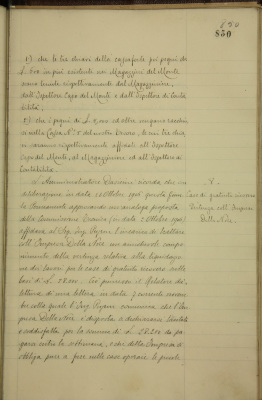 850
1) che le tre chiavi della cassaforte pei pegni da
L. 500 in più esistenti nei Magazzini del Monte
siano tenute rispettivamente dal Magazziniere,
dall'Ispettore Capo dei Monti e dall'Ispettore di Conta-
bilità;
2) che i pegni di L. 5,000 ed oltre vengano custodi-
ti nella Cassa N.° 8 del nostro Tesoro, le cui tre chia-
vi saranno rispettivamente affidate all'Ispettore
Capo dei Monti, al Magazziniere ed all'Ispettore di
Contabilità.
L'Amministratore ricorda che su
deliberazione in data 12 Ottobre 1906 questa Giun-
ta Permanente approvando una analoga proposta
della Commissione Tecnica (in data 5 Ottobre 1906)
affidava al Sig. Ing. l'incarico di trattare
coll'Impresa Della Noce un amichevole compo-
nimento della vertenza relativa alla liquidazio-
ne dei lavori per le case di gratuito ricovero sulla
base di L. 28,000.
lettura di una lettera in data 7 corrente novem-
bre colla quale l'Ing. comunica che l'Im-
presa Della Noce è disposta a dichiararsi tacitata
e soddisfatta per la somma di L. 28,250 da pa-
garsi entro la settimana, e che detta Impresa si
obbliga pure a fare nelle case operaie le piccole
V.
Case di gratuito ricovero
Vertenza coll'Impresa
Della Noce.